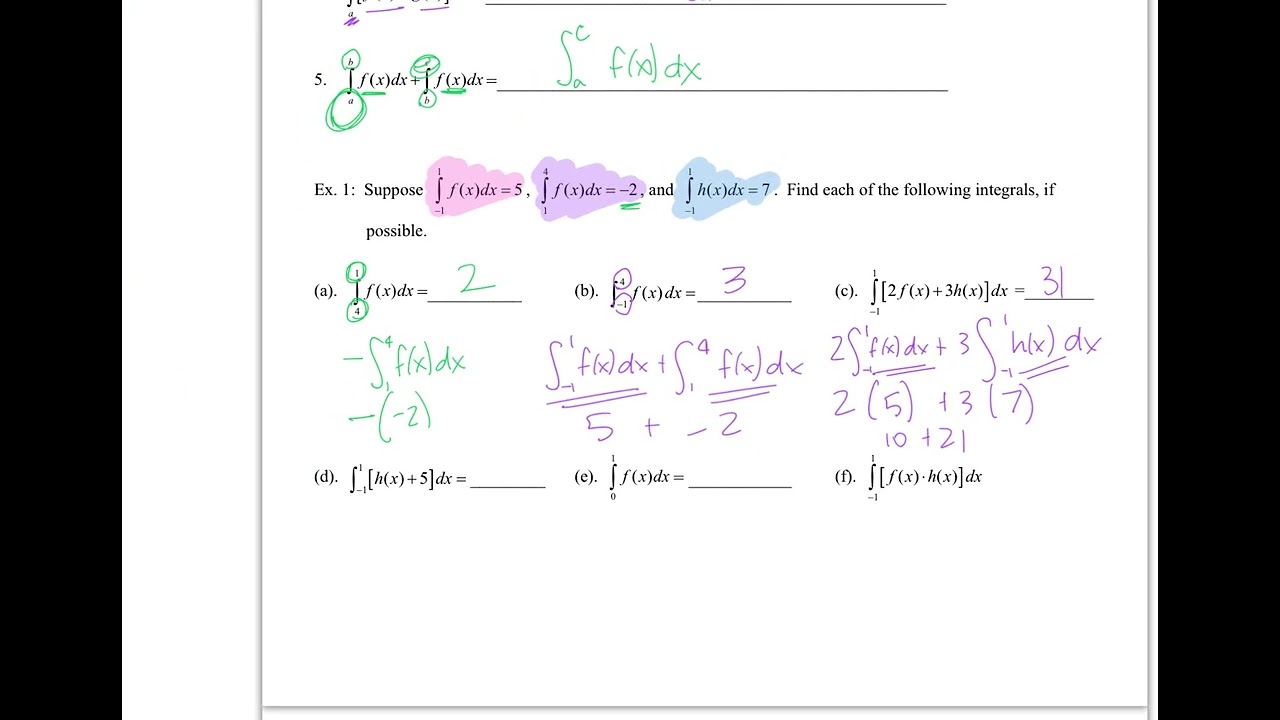 5. ∫_a^b f(x)dx + ∫_b^c f(x)dx = ∫_a^c f(x)dx
Ex. 1: Suppose ∫_{-1}^1 f(x)dx = 5, ∫_1^4 f(x)dx = −2, and ∫_{-1}^1 h(x)dx = 7. Find each of the following integrals, if
possible.
(a). ∫_4^1 f(x)dx = 2
(b). ∫_{-1}^4 f(x)dx = 3
(c). ∫_{-1}^1 [2f(x)+3h(x)]dx = 31
−∫_1^4 f(x)dx
∫_{-1}^1 f(x)dx + ∫_1^4 f(x)dx
2∫_{-1}^1 f(x)dx + 3∫_{-1}^1 h(x)dx
−(−2)
5 + −2
2(5) + 3(7)
10 + 21
(d). ∫_{-1}^1 [h(x)+5]dx = ________
(e). ∫_0^1 f(x)dx = ________
(f). ∫_{-1}^1 [f(x)·h(x)]dx